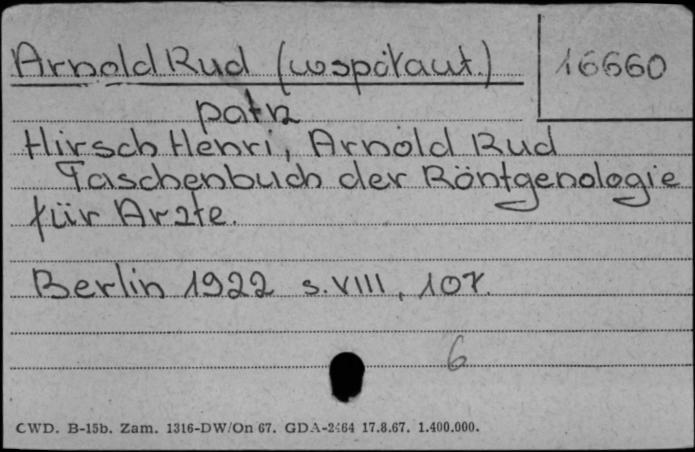 Arnold Rud (współaut.)
16660
patrz
Hirsch Henri, Arnold Rud
Taschenbuch der Röntgenologie
für Arzte.
Berlin 1922 s. VIII, 107.
6
CWD. B-15b. Zam. 1316-DW/On 67. GDA-2464 17.8.67. 1.400.000.